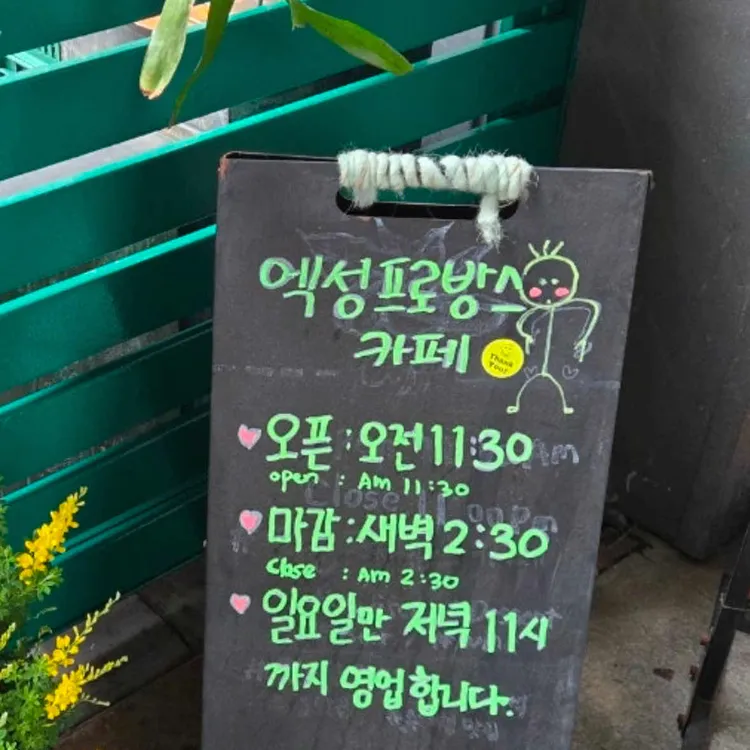 엑성프로방스
카페
Thank
You!
오픈 : 오전 11:30
open : Am 11:30
마감 : 새벽 2:30
Close : Am 2:30
일요일만 저녁 11시
까지 영업합니다.